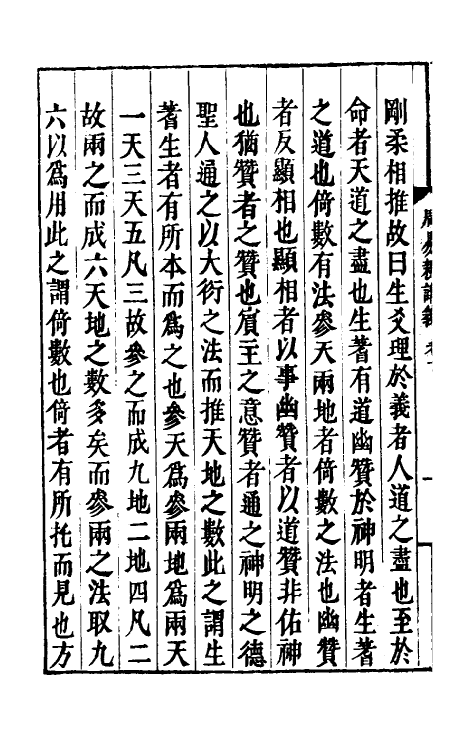 剛柔相推故曰生爻理於義者人道之盡也至於
命者天道之盡也生蓍有道幽贊於神明者生蓍
之道也倚數有法參天兩地者倚數之法也幽贊
者反顯相也顯相者以事幽贊者以道贊非佑神
也猶贊者之贊也賔主之意贊者通之神明之德
聖人通之以大衍之法而推天地之數此之謂生
蓍生者有所本而爲之也參天爲參兩地爲兩天
一天三天五凡三故參之而成九地二地四凡二
故兩之而成六天地之數多矣而參兩之法取九
六以爲用此之謂倚數也倚者有所托而見也方